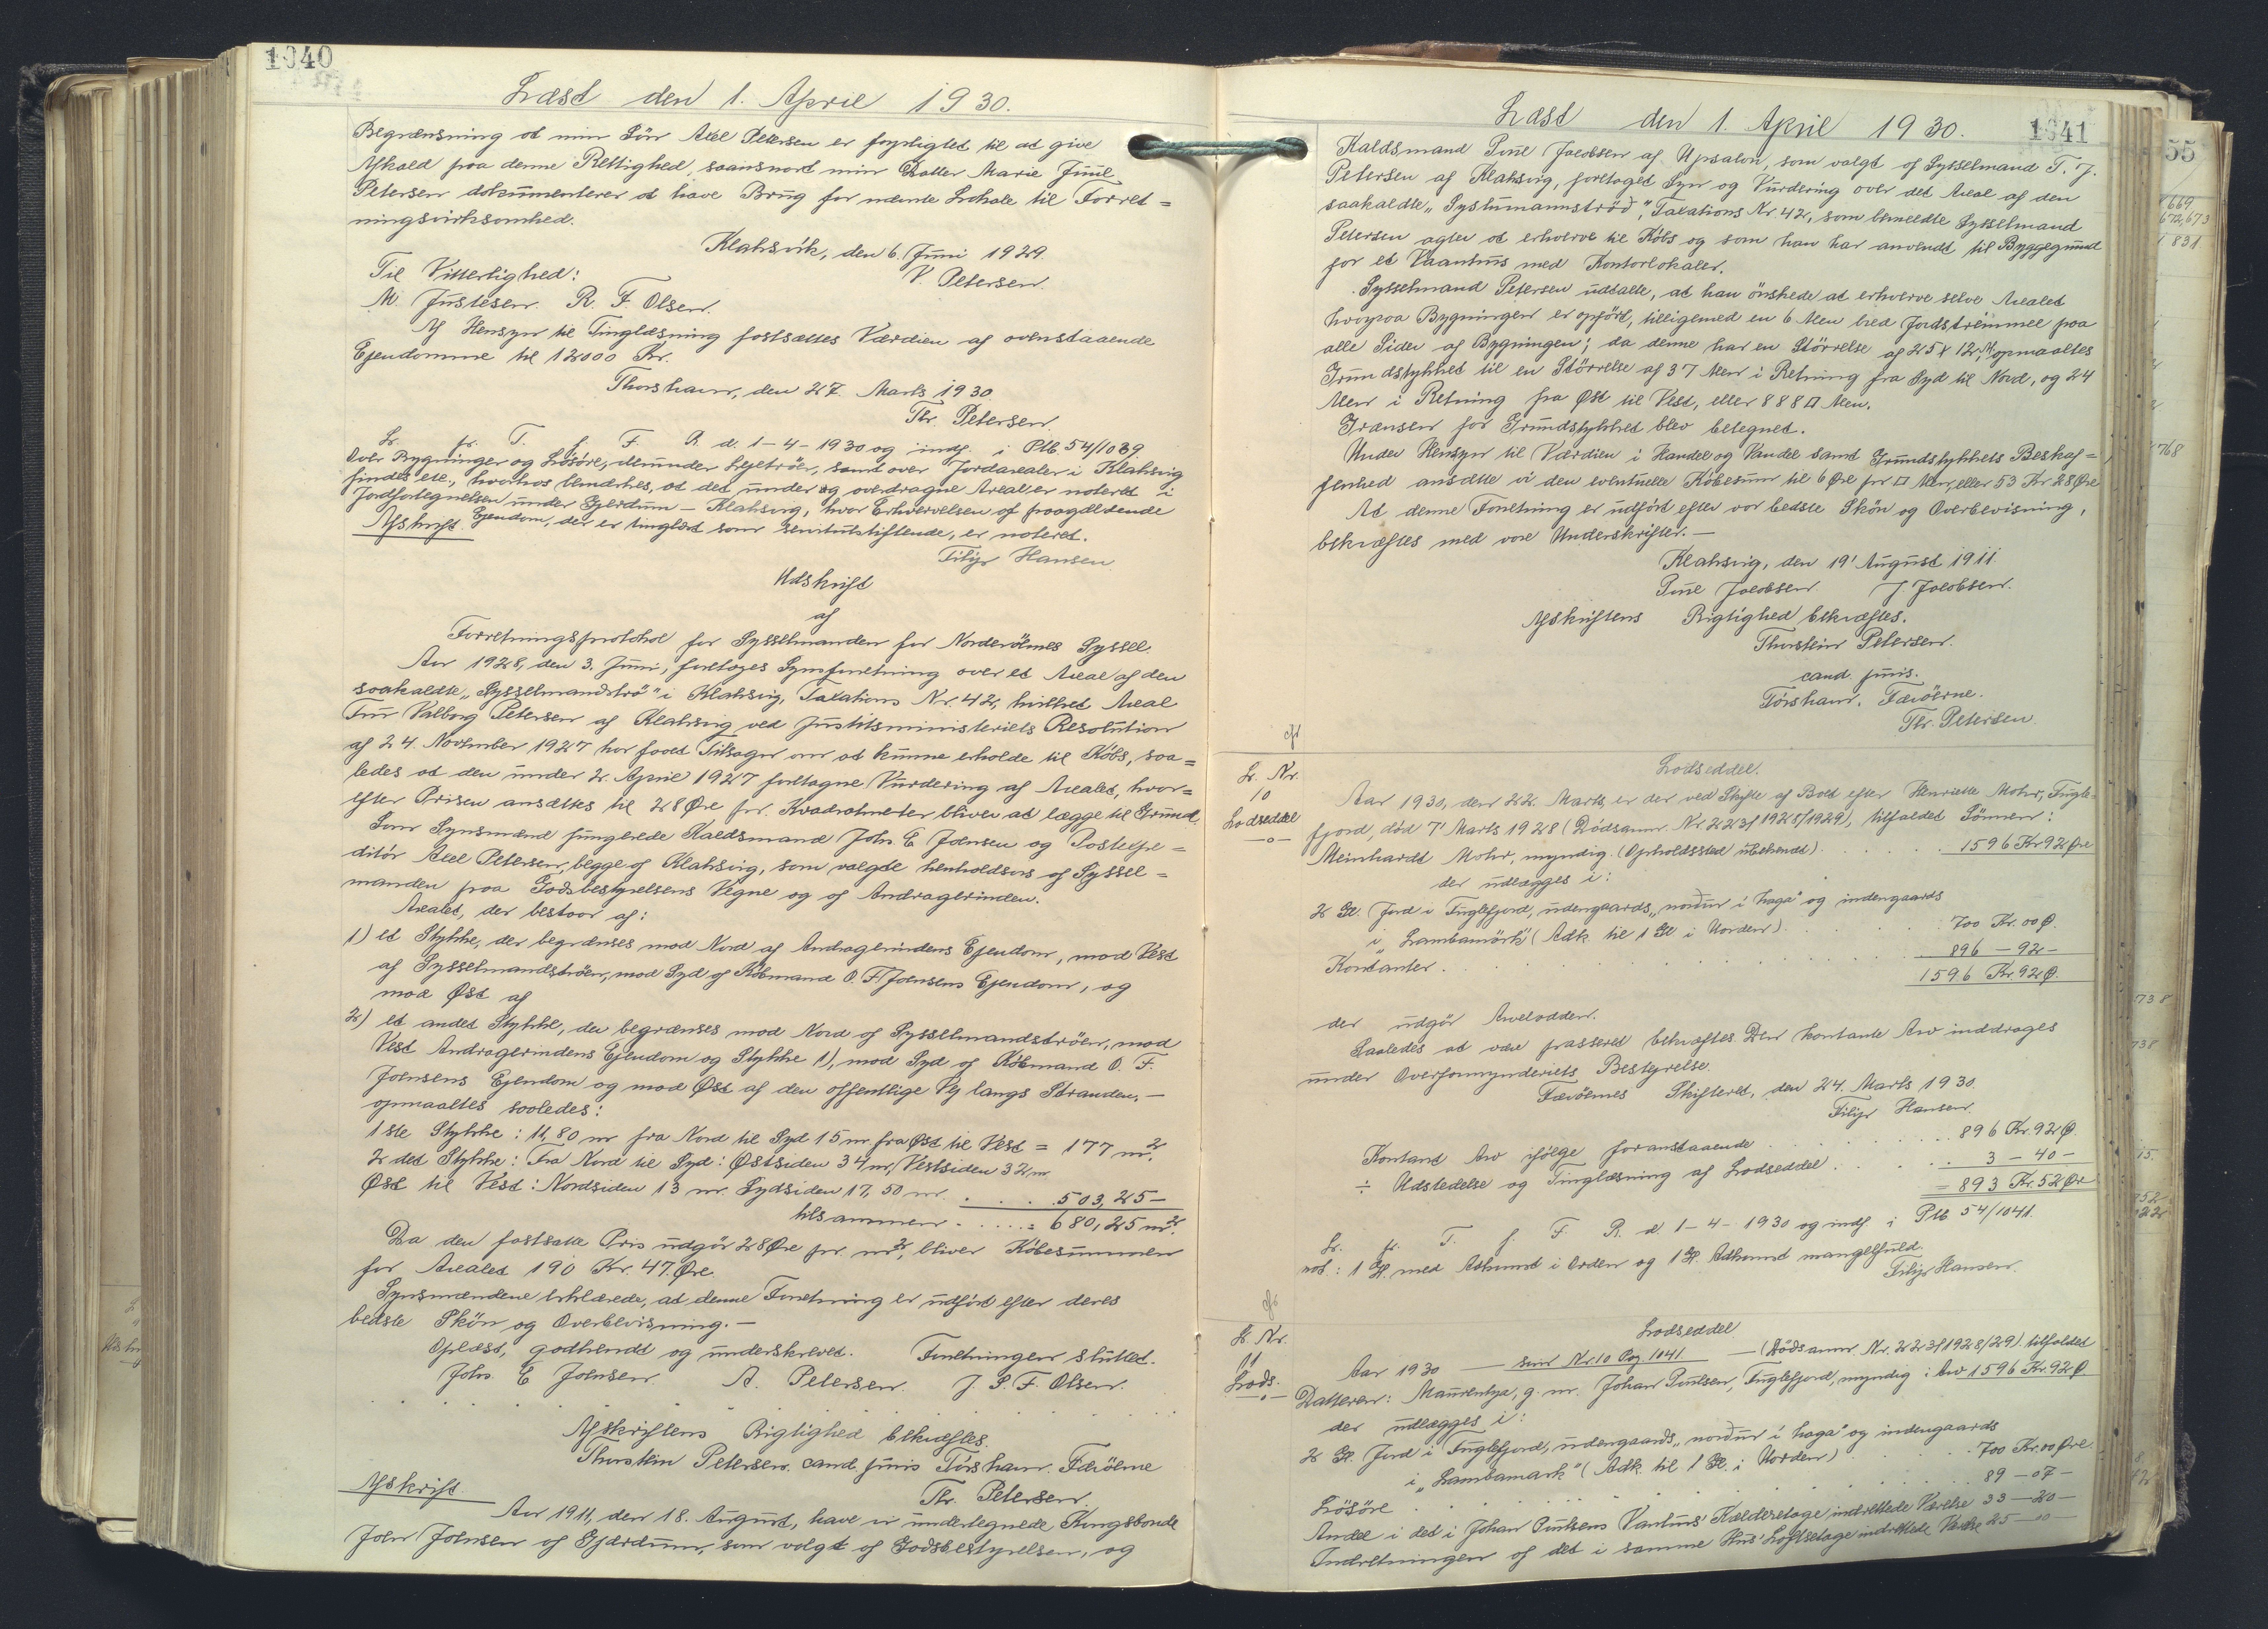 1040
Læst den 1. April 1930.
Begrænsning at min Sön Axel Petersen er forpligtet til at give
Afkald paa denne Rettighed, saasnart min Datter Marie Juul
Petersen dokumenterer at have Brug for nævnte Lokale til Forret=
ningsvirksomhed.
Klaksvik, den 6. Juni 1929.
Til Vitterlighed: V. Petersen.
M. Justesen. R. F. Olsen.
Af Hensyn til Tinglæsning fastsættes Værdien af ovenstaaende
Ejendomme til 12000 Kr.
Thorshavn, den 27. Marts 1930.
Thr. Petersen.
Lr. fr. T. f. F. R. d. 1-4-1930 og indf. i Ptb. 54/1039.
Over Bygninger og Lösöre, derunder Hjetröer, samt over Jordarealer i Klaksvig
findes etc., hvorhos bemærkes, at det under og overdragne Areal er noteret i
Jordfortegnelsen under Gjerdum - Klaksvig, hvor Erhvervelsen af paagældende
Ejendom, der er tinglæst som servitutstiftende, er noteret.
Afskrift. Filip Hansen.
Udskrift
af
Forretningsprotokol for Sysselmanden for Norderöernes Syssel.
Aar 1928, den 3. Juni, foretoges Synsforretning over et Areal af den
saakaldte „Sysselmandströ" i Klaksvig, Taxations Nr. 42, hvilket Areal
Fru Valborg Petersen af Klaksvig ved Justitsministeriets Resolution
af 24. November 1927 har faaet Tilsagn om at kunne erholde til Köbs, saa=
ledes at den under 2. April 1927 foretagne Vurdering af Arealet, hvor=
efter Prisen ansættes til 28 Øre pr. Kvadratmeter bliver at lægge til Grund.
Som Synsmænd fungerede Kaldsmand Johs. E. Joensen og Postexpe=
ditör Axel Petersen, begge af Klaksvig, som valgte henholdsvis af Syssel=
manden paa Godsbestyrelsens Vegne og af Andragerinden.
Arealet, der bestaar af:
1) et Stykke, der begrænses mod Nord af Andragerindens Ejendom, mod Vest
af Sysselmandströen, mod Syd af Köbmand O. F. Joensens Ejendom, og
mod Øst af
2) et andet Stykke, der begrænses mod Nord af Sysselmandströen, mod
Vest Andragerindens Ejendom og Stykke 1), mod Syd af Köbmand O. F.
Joensens Ejendom og mod Øst af den offentlige Vej langs Stranden, -
opmaaltes saaledes:
1ste Stykke: 11,80 m fra Nord til Syd 15 m fra Øst til Vest = 177 m².
2det Stykke: Fra Nord til Syd: Østsiden 34 m, Vestsiden 32 m
Øst til Vest: Nordsiden 13 m. Sydsiden 17,50 m. . . . . 503,25 -
tilsammen . . . . . = 680,25 m².
Da den fastsatte Pris udgör 28 Øre pr. m², bliver Köbesummen
for Arealet 190 Kr. 47 Øre.
Synsmændene erklærede, at denne Forretning er udfört efter deres
bedste Skön og Overbevisning. -
Oplæst, godkendt og underskrevet. Forretningen sluttet.
Johs. E Joensen A. Petersen. J. P. F. Olsen.
Afskriftens Rigtighed bekræftes.
Thorstein Petersen. cand. juris Tórshavn. Færöerne
Thr. Petersen.
Afskrift.
Aar 1911, den 18. August, have vi undertegnede Kongsbonde
Joen Joensen af Gjærdum, som valgt af Godsbestyrelsen, og
1041
Læst den 1. April 1930.
Kaldsmand Poul Jacobsen af Upsalon, som valgt af Sysselmand T. J.
Petersen af Klaksvig, foretaget Syn og Vurdering over det Areal af den
saakaldte „Syslumannströd", Taxations Nr. 42, som bemeldte Sysselmand
Petersen agter at erhverve til Köbs og som han har anvendt til Byggegrund
for et Vaanhus med Kontorlokaler.
Sysselmand Petersen udtalte, at han önskede at erhverve selve Arealet
hvorpaa Bygningen er opfört, tilligemed en 6 Alen bred Jordströmmel paa
alle Sider af Bygningen; da denne har en Störrelse af 25 x 12 Al, opmaaltes
Grundstykket til en Störrelse af 37 Alen i Retning fra Syd til Nord, og 24
Alen i Retning fra Øst til Vest, eller 888 □ Alen.
Grænsen for Grundstykket blev betegnet.
Under Hensyn til Værdien i Handel og Vandel samt Grundstykkets Beskaf=
fenhed ansatte vi den eventuelle Köbesum til 6 Øre pr □ Alen, eller 53 Kr 28 Øre
At denne Forretning er udfört efter vor bedste Skön og Overbevisning,
bekræftes med vore Underskrifter. -
Klaksvig, den 19' August 1911.
Poul Jacobsen J Jacobsen.
Afskriftens Rigtighed bekræftes.
Thorstein Petersen.
cand. juris.
Tórshavn, Færöerne.
Thr. Petersen.
Lr. Nr.
10
Lodseddel
-o-
Lodseddel.
Aar 1930, den 22. Marts, er der ved Skifte af Boet efter Henriette Mohr, Fugle=
fjord, död 7' Marts 1928 (Dödsanm. Nr. 223/1928/1929), tilfaldet Sönnen:
Meinhardt Mohr, myndig. (Opholdssted ubekendt) . . . . . 1596 Kr 92 Øre
der udlægges i:
2 Gl. Jord i Fuglefjord, udengaards, „nordur i haga" og indengaards
i „Lambamörk" (Adk. til 1 Gl. i Orden) . . . . 700 Kr. 00 Ø.
Kontanter . . . . . 896 - 92 -
1596 Kr. 92 Ø.
der udgör Arvelodden.
Saaledes at være passeret bekræftes. Den kontante Arv inddrages
under Overformynderiets Bestyrelse.
Færöernes Skifteret, den 24. Marts 1930.
Filip Hansen.
Kontant Arv ifölge foranstaaende . . . . . 896 Kr. 92 Ø.
÷ Udstedelse og Tinglæsning af Lodseddel . . . . 3 - 40 -
= 893 Kr. 52 Øre
Lr. fr. T. f. F. R. d. 1-4-1930 og indf. i Ptb 54/1041.
not: 1 Gl. med Adkomst i Orden og 1 Gl. Adkomst mangelfuld.
Filip Hansen.
Lr. Nr.
11
Lods.
-o-
Lodseddel
Aar 1930 — som Nr. 10 Pag. 1041 — (Dödsanm. Nr. 223/1928/29) tilfaldet
Datteren: Maurentza, g. m. Johan Poulsen, Fuglefjord, myndig: Arv 1596 Kr. 92 Ø
der udlægges i:
2 Gl. Jord i Fuglefjord, udengaards, „nordur i haga" og indengaards
i „Lambamark" (Adk. til 1 Gl. i Orden) . . . 700 Kr. 00 Øre.
Lösöre . . . . . 89 - 07 -
Andel i det i Johan Poulsens Vaanhus' Kælderetage indrettede Værelse 33 - 20 -
Indretningen af det i samme Hus' Loftsetage indrettede Værelse 25 - 00 -
55
669
672,673
831
768
738
738
15.
852